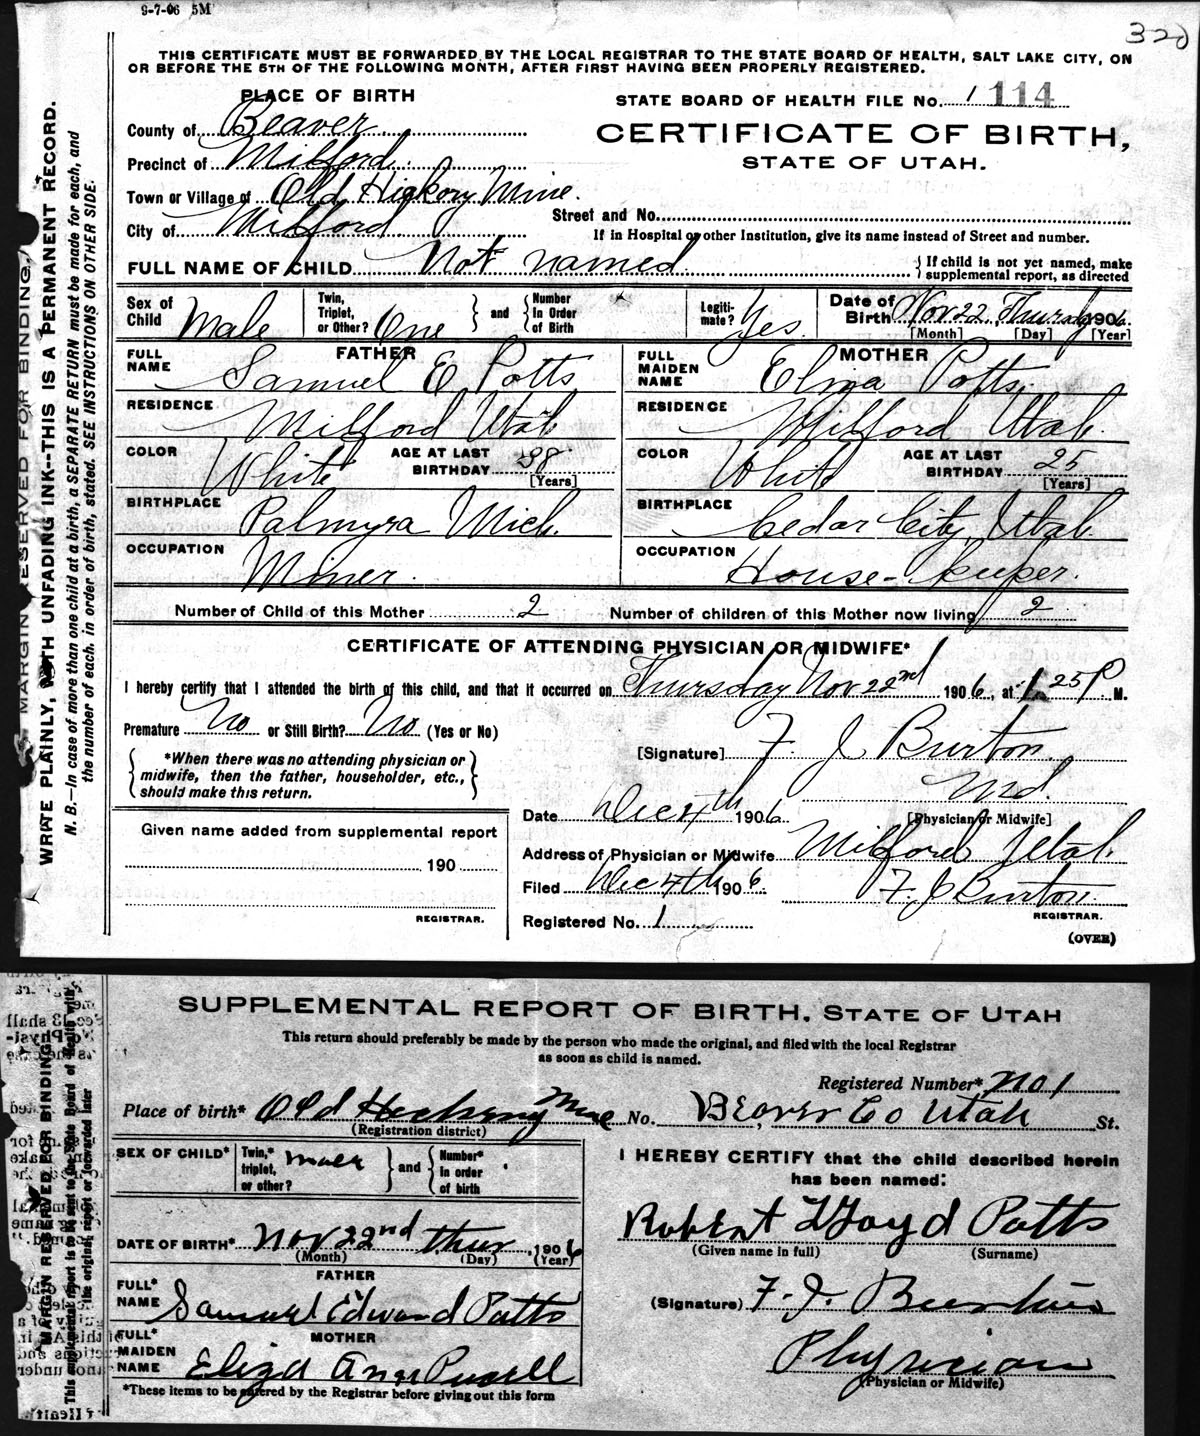 9-7-06 5M
320
THIS CERTIFICATE MUST BE FORWARDED BY THE LOCAL REGISTRAR TO THE STATE BOARD OF HEALTH, SALT LAKE CITY, ON
OR BEFORE THE 5TH OF THE FOLLOWING MONTH, AFTER FIRST HAVING BEEN PROPERLY REGISTERED.
PLACE OF BIRTH
STATE BOARD OF HEALTH FILE No. 1 114
County of Beaver
CERTIFICATE OF BIRTH,
STATE OF UTAH.
Precinct of Milford.
Town or Village of Old Hickory Mine.
Street and No.
City of Milford.
If in Hospital or other Institution, give its name instead of Street and number.
FULL NAME OF CHILD Not named
{ If child is not yet named, make
supplemental report, as directed
Sex of Child Male
Twin, Triplet, or Other? One } and { Number In Order of Birth
Legiti-mate? Yes.
Date of Birth Nov 22, Thursday 1906.
[Month] [Day] [Year]
FATHER
FULL NAME Samuel E Potts
RESIDENCE Milford Utah
COLOR White AGE AT LAST BIRTHDAY 38 [Years]
BIRTHPLACE Palmyra Mich.
OCCUPATION Miner.
MOTHER
FULL MAIDEN NAME Eliza Potts.
RESIDENCE Milford Utah.
COLOR White AGE AT LAST BIRTHDAY 25 [Years]
BIRTHPLACE Cedar City, Utah.
OCCUPATION House-keeper.
Number of Child of this Mother 2 Number of children of this Mother now living 2
CERTIFICATE OF ATTENDING PHYSICIAN OR MIDWIFE*
I hereby certify that I attended the birth of this child, and that it occurred on Thursday Nov 22nd 1906, at 1.25 P M.
Premature No or Still Birth? No (Yes or No)
{ *When there was no attending physician or
midwife, then the father, householder, etc.,
should make this return. }
[Signature] F. J. Burton
Md.
[Physician or Midwife]
Date Dec 4th 1906.
Given name added from supplemental report
190
REGISTRAR.
Address of Physician or Midwife Milford Utah.
Filed Dec 4th 1906. F. J Burton.
REGISTRAR.
Registered No. 1
(OVER)
MARGIN RESERVED FOR BINDING.
WRITE PLAINLY, WITH UNFADING INK--THIS IS A PERMANENT RECORD.
N. B.--In case of more than one child at a birth, a SEPARATE RETURN must be made for each, and
the number of each, in order of birth, stated. SEE INSTRUCTIONS ON OTHER SIDE.
SUPPLEMENTAL REPORT OF BIRTH. STATE OF UTAH
This return should preferably be made by the person who made the original, and filed with the local Registrar
as soon as child is named.
Registered Number* No 1
Place of birth* Old Hickory Mine No. Beaver Co Utah St.
(Registration district)
SEX OF CHILD* Twin,* triplet, or other? Male } and { Number* in order of birth
I HEREBY CERTIFY that the child described herein
has been named:
Robert Lloyd Potts
(Given name in full) (Surname)
DATE OF BIRTH* Nov 22nd thur, 1906
(Month) (Day) (Year)
FATHER
FULL* NAME Samuel Edward Potts
(Signature) F. J. Burton
Physician
(Physician or Midwife)
MOTHER
FULL* MAIDEN NAME Eliza Ann
*These items to be entered by the Registrar before giving out this form
MARGIN RESERVED FOR BINDING
This supplemental report is to be sent to the State Board of Health with
the original report or forwarded later